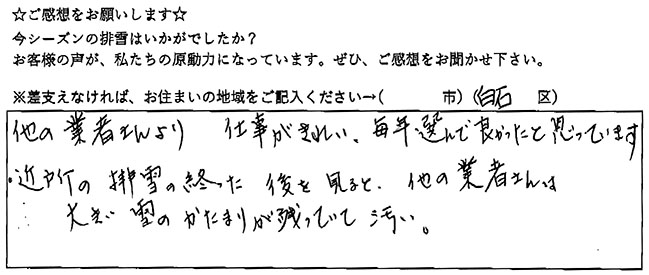 ☆ご感想をお願いします☆
今シーズンの排雪はいかがでしたか？
お客様の声が、私たちの原動力になっています。ぜひ、ご感想をお聞かせ下さい。
※差支えなければ、お住まいの地域をご記入ください→(　　　　市) (白石　区)
他の業者さんより　仕事がきれい、毎年選んで良かったと思っています
・近所の排雪の終った後を見ると、他の業者さんは
大きい雪のかたまりが残っていて汚い。